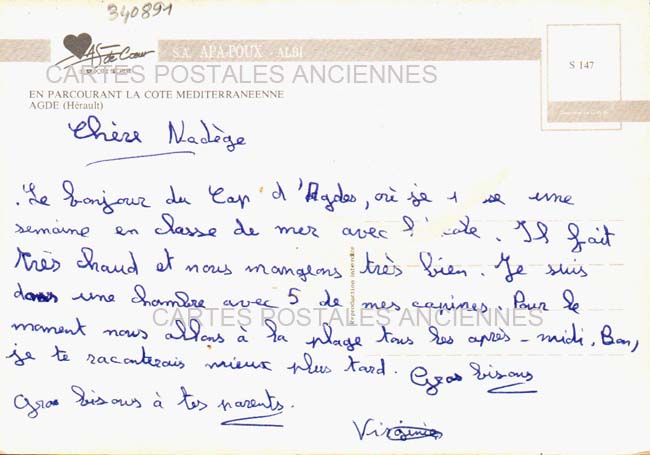 340891
As de Coeur
S.A. APA-POUX - ALBI
CARTES POSTALES ANCIENNES
S 147
EN PARCOURANT LA COTE MEDITERRANEENNE
AGDE (Hérault)
Chère Nadège
Le bonjour du Cap d'Agdes, où je se une
semaine en classe de mer avec l' cole. Il fait
très chaud et nous mangeons très bien. Je suis
dans une chambre avec 5 de mes copines. Pour le
CARTES POSTALES ANCIENNES
moment nous allons à la plage tous les après-midi. Bon,
je te raconterais mieux plus tard. Gros bisous
Gros bisous à tes parents.
Virginie
Reproduction interdite